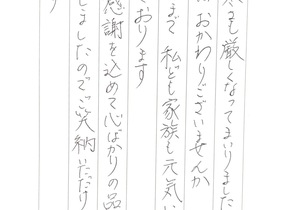 も厳しくなってまいりました
おかわりございませんか
まで 私ども家族も元気に
おります
感謝を込めて心ばかりの品
しましたのでご笑納いただけ